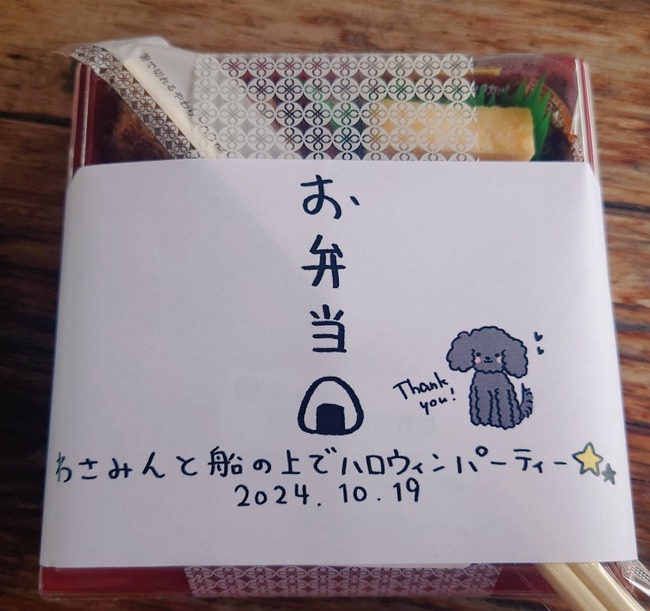 お弁当
Thank
you!
わさみんと船の上でハロウィンパーティー
2024.10.19